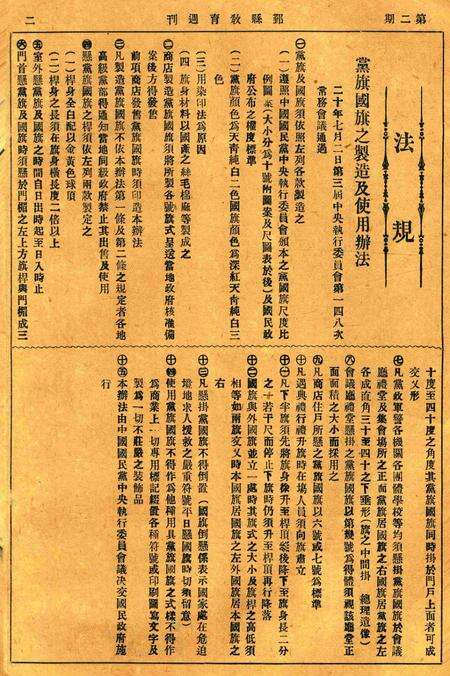 第二期
鄞縣教育週刊
二
法規
黨旗國旗之製造及使用辦法
二十年七月二日第三屆中央執行委員會第一四八次
常務會議通過
㊀黨旗及國旗須依照左列各款製造之
(一)遵照中國國民黨中央執行委員會頒本之黨國旗尺度比
例圖案(大小分爲十號附圖案及尺圖表於後)及國民政
府公布之權度標準
(二)黨旗顏色爲天靑純白二色國旗顏色爲深紅天靑純白三
色
(三)用染印法爲原因
(四)旗身材料以國產之絲毛棉蔴等製成之
㊁商店製造黨旗國旗須將所製各號旗式呈送當地政府核准備
案後方得發售
前項商店發售黨旗國旗時須印造本辦法
㊂凡製造黨旗國旗不依本辦法第一條及第二條之規定者各地
高級黨部得通知當地同級政府禁止其出售及使用
㊃懸黨旗國旗之桿須依左列兩款製定之
(一)桿身之長須在旗身橫長度二倍以上
(二)桿身全白配以金黃色球頂
㊄室外懸黨旗及國旗之時間自日出時起至日入時止
㊅門首懸黨旗及國旗時須懸於門楣之左上方旗桿與門楣成三
十度至四十度之角度其黨旗國旗同時掛於門戶上面者可成
交叉形
㊆凡黨政軍警各機關各團體學校等均須懸掛黨旗國旗於會議
廳禮堂及集會場所之正面黨旗居國旗之右國旗居黨旗之左
各成直角三十至四十之下垂形(旗之中間掛 總理遺像)
㊇會議廳禮堂懸掛之黨旗國旗以第幾號爲得體須視該廳堂正
面面積之大小而採用之
㊈凡商店住戶所懸之黨旗國旗以六號或七號爲標準
㊉凡遇典禮行禮升旗時在場人員須向旗肅立
十一凡下半旗須先將旗身徐升至桿頂嗣後降下至旗身長二分
之一若干尺而停止下旗時仍須升至桿頂再行降落
十二國旗與外國旗並立一處時其旗式之大小及旗桿之高低須
相等如兩旗交叉時本國旗居國旗之左外國旗居本國旗之
右
十三凡懸掛黨旗國旗不得倒置(國旗倒懸係表示國家處在危迫
境地求人援救之嚴重符號平日懸國旗時切須留意)
十四使用黨旗國旗不得作爲他種用具黨旗國旗之式樣不得作
爲商業上一切專用標記經營各種符號或印刷圖寫文字及
製爲一切不莊嚴之裝飾品
十五本辦法由中國國民黨中央執行委員會議決交國民政府施
行